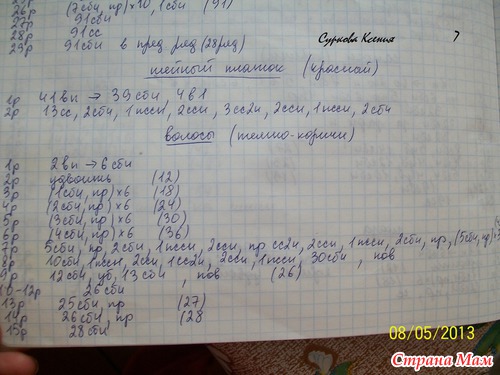 26р (7сбн, пр)×10, 1сбн (91)
27р 91сбн
28р 91сс
29р 91сбн в пред. ряд (28ряд)
Суркова Ксения 7
шейный платок (красной)
1р 41вп → 39сбн, 4в1
2р 13сс, 2сбн, 1псн, 2ссн, 3сс2н, 2ссн, 1псн, 2сбн
волосы (темно-коричн)
1р 2вп → 6сбн
2р удвоить (12)
3р (1сбн, пр)×6 (18)
4р (2сбн, пр)×6 (24)
5р (3сбн, пр)×6 (30)
(4сбн, пр)×6 (36)
5сбн, пр, 2сбн, 1пссн, 2ссн, пр сс2н, 2ссн, 1пссн, 2сбн, пр, (5сбн, пр)
10сбн, 1пссн, 2ссн, 1сс2н, 2ссн, 1пссн, 30сбн, пов
12сбн, уб, 13сбн, пов (26)
10-12р 26сбн
13р 25сбн, пр (27)
14р 26сбн, пр (28
15р 28сбн
08/05/2013
Страна Мам